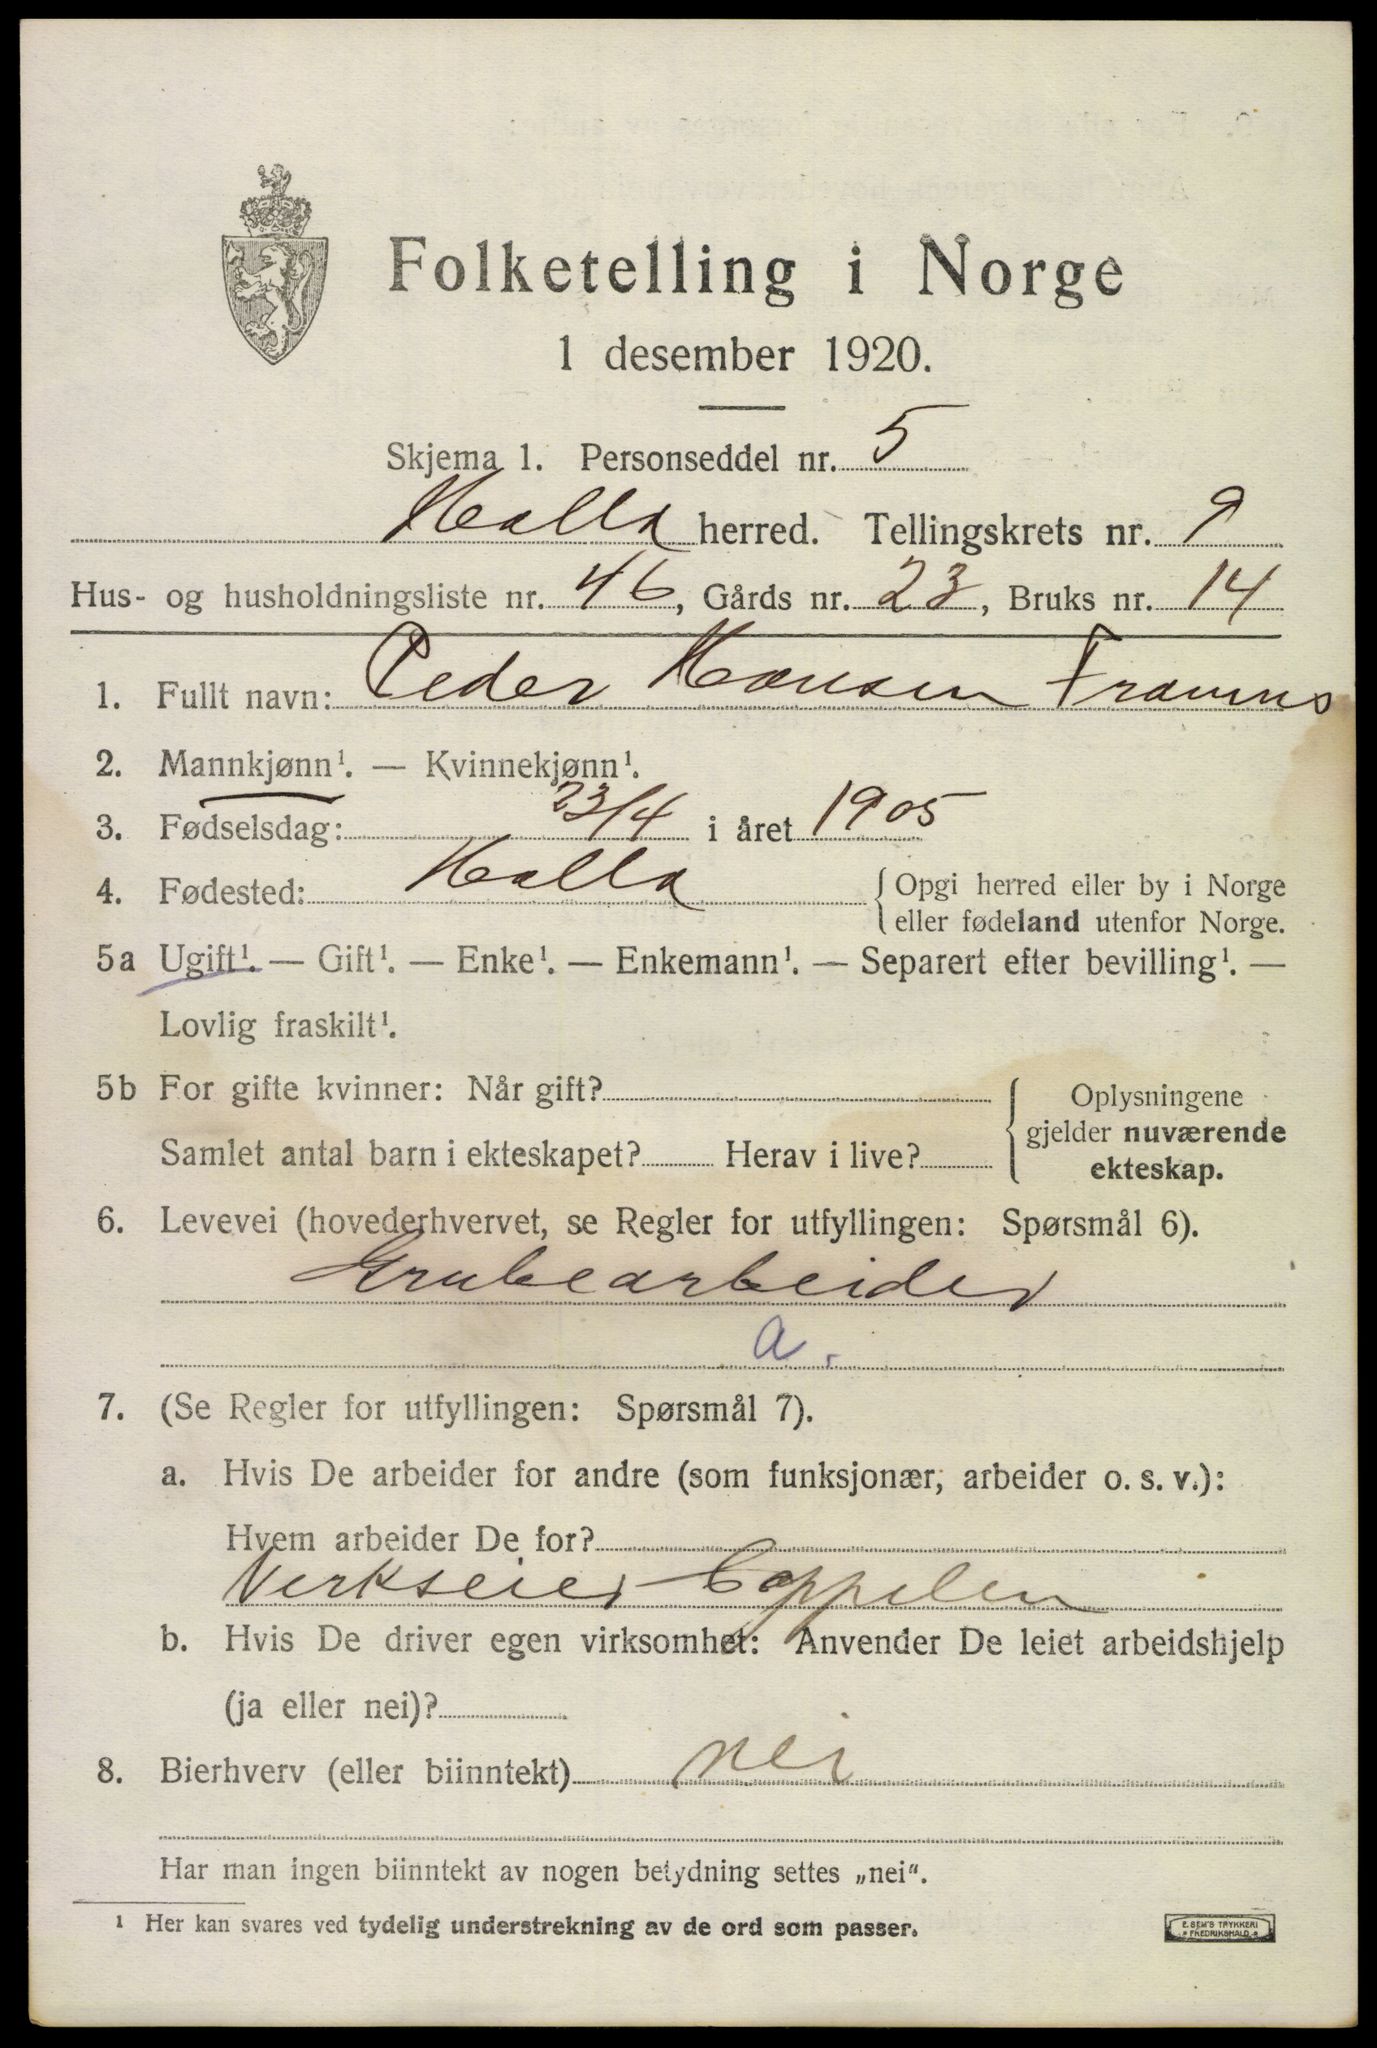 Folketelling i Norge
1 desember 1920.
Skjema 1. Personseddel nr. 5
Holla herred. Tellingskrets nr. 9
Hus- og husholdningsliste nr. 46, Gårds nr. 23, Bruks nr. 14
1. Fullt navn: Peder Hansen
2. Mannkjønn¹. — Kvinnekjønn¹.
3. Fødselsdag: 23/4 i året 1905
4. Fødested: Holla {Opgi herred eller by i Norge
eller fødeland utenfor Norge.
5a Ugift¹. — Gift¹. — Enke¹. — Enkemann¹. — Separert efter bevilling¹. —
Lovlig fraskilt¹.
5b For gifte kvinner: Når gift? { Oplysningene
gjelder nuværende
Samlet antal barn i ekteskapet? Herav i live?
ekteskap.
6. Levevei (hovederhvervet, se Regler for utfyllingen: Spørsmål 6).
Grubearbeider
a.
7. (Se Regler for utfyllingen: Spørsmål 7).
a. Hvis De arbeider for andre (som funksjonær, arbeider o. s. v.):
Hvem arbeider De for?
Verkseier Cappelen
b. Hvis De driver egen virksomhet: Anvender De leiet arbeidshjelp
(ja eller nei)?
8. Bierhverv (eller biinntekt) nei
Har man ingen biinntekt av nogen betydning settes „nei".
¹ Her kan svares ved tydelig understrekning av de ord som passer.
E. SEM'S TRYKKERI
FREDRIKSHALD